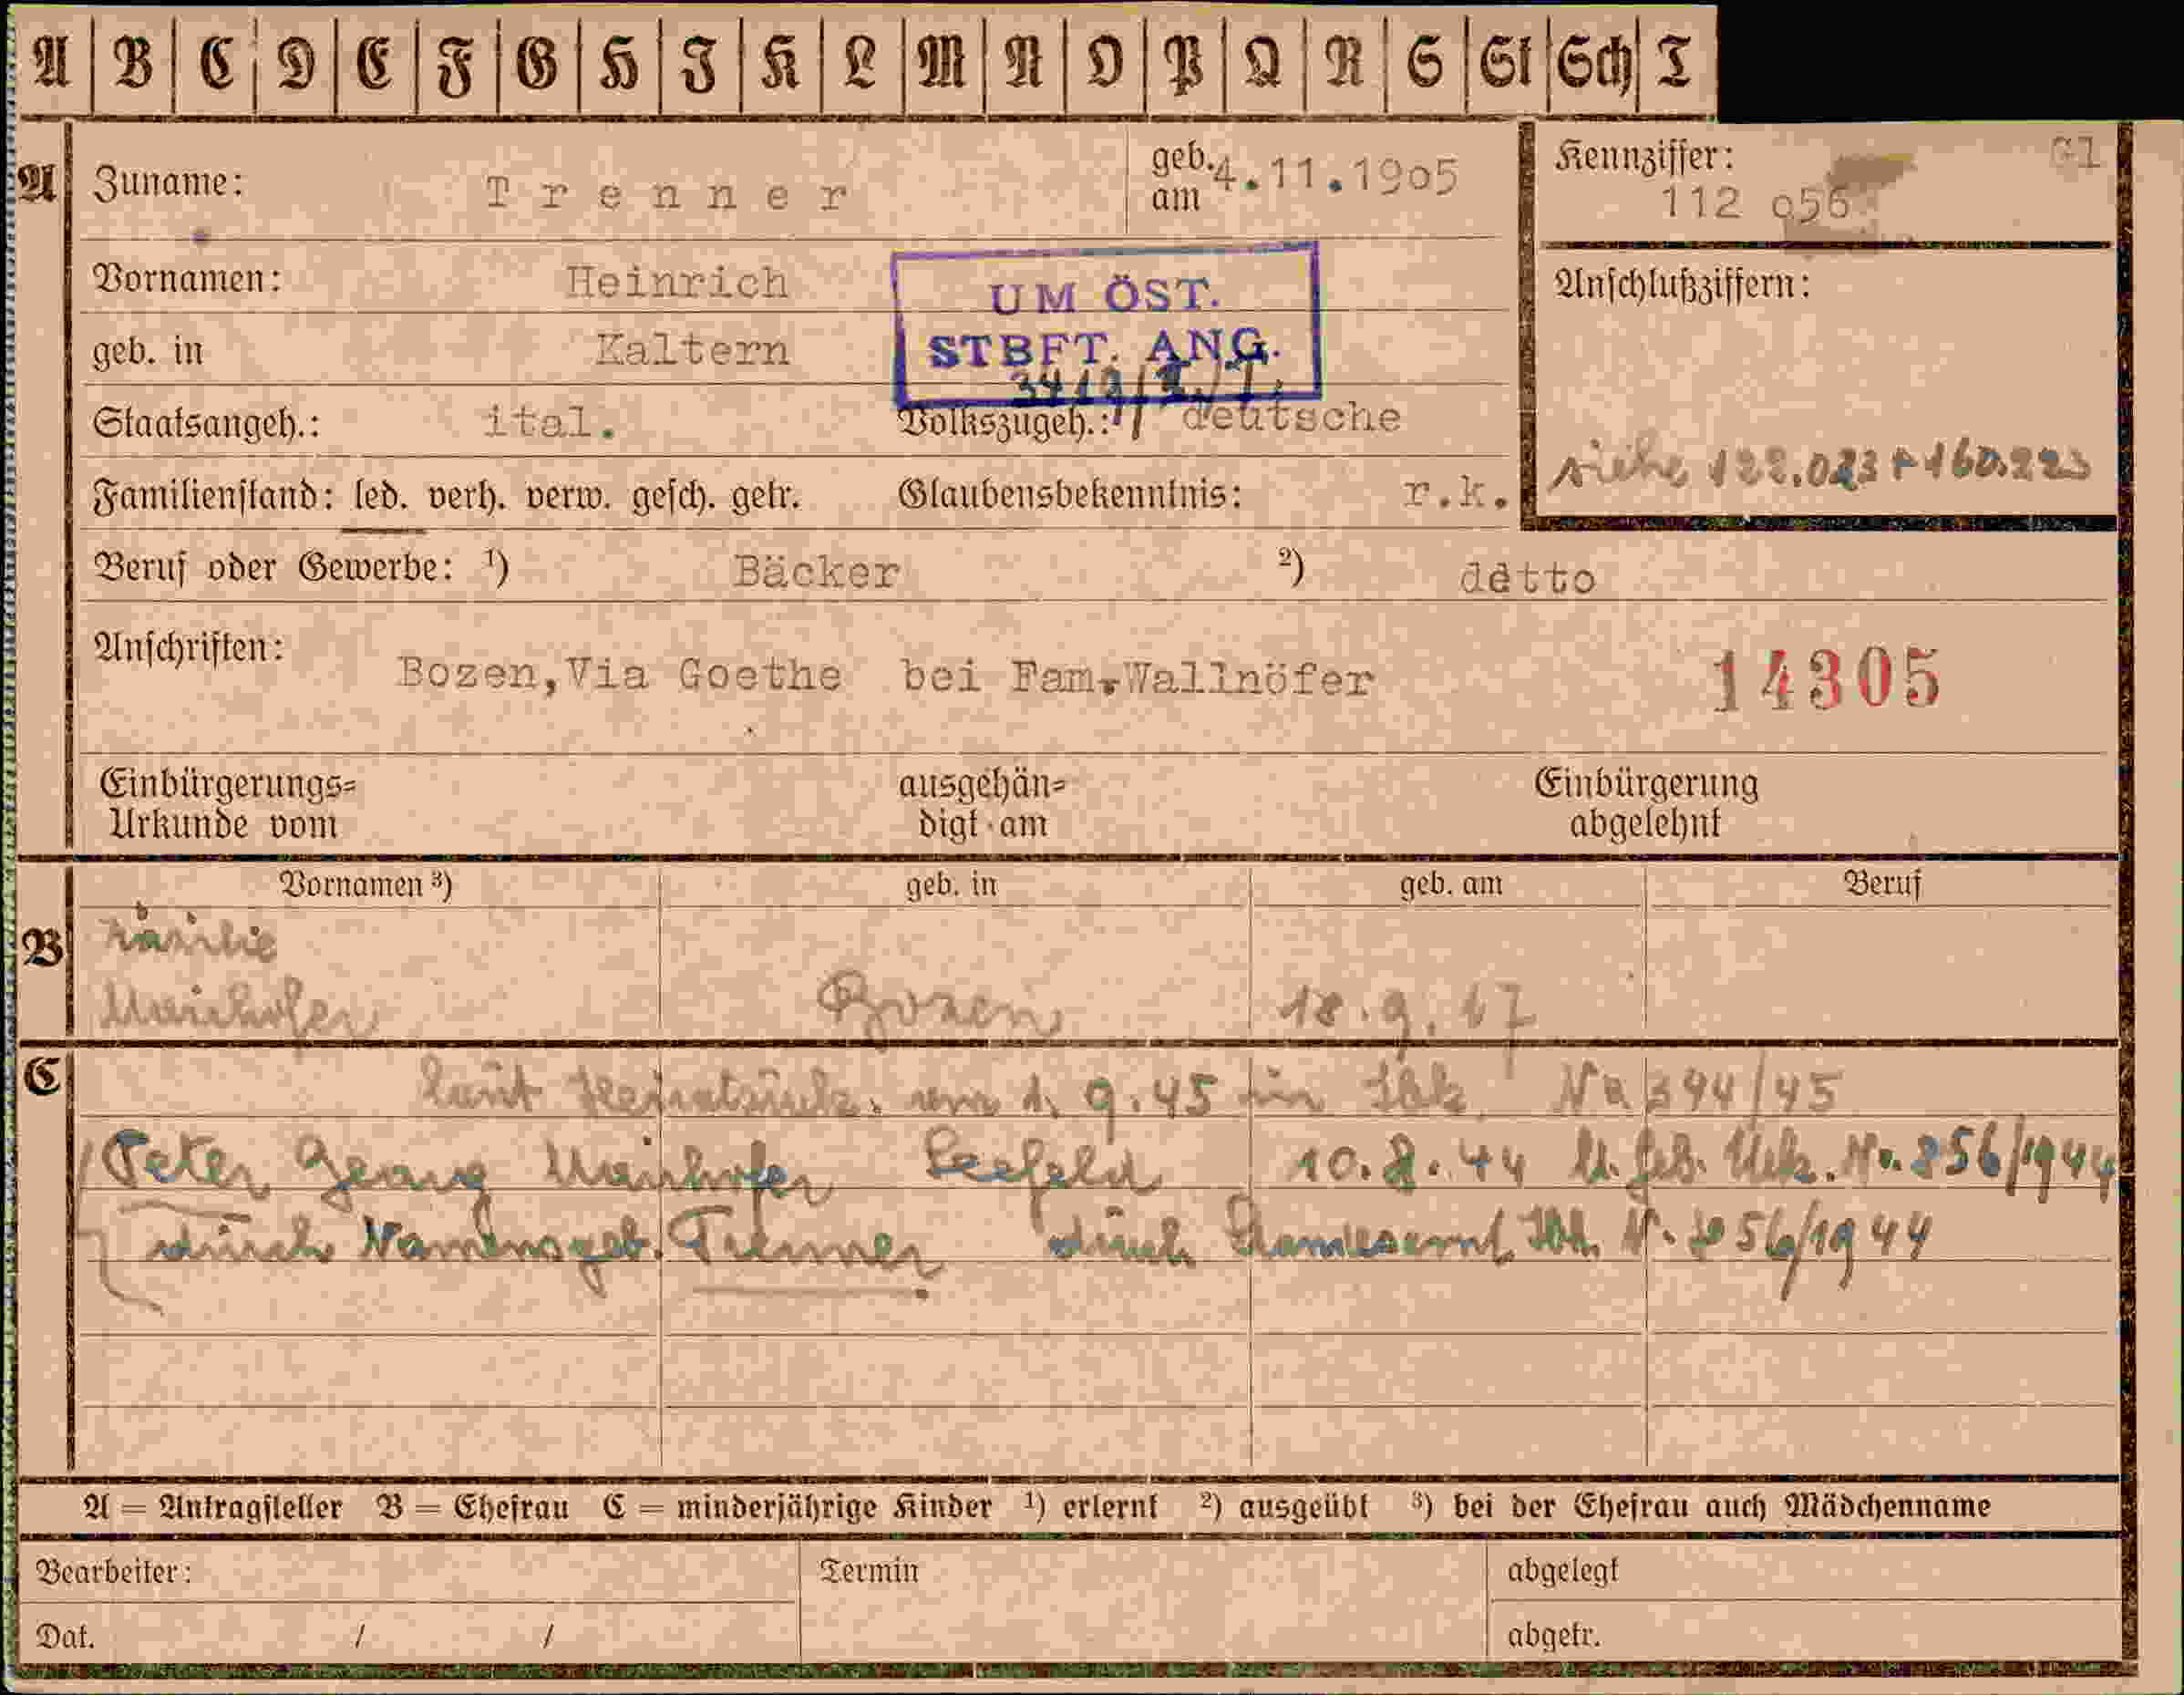 A B C D E F G H J K L M N O P Q R S St Sch T
A Zuname: Trenner geb. am 4.11.1905 Kennziffer: 112 o56 G1
Vornamen: Heinrich UM ÖST. Anschlußziffern:
geb. in Kaltern STBFT. ANG.
Staatsangeh.: ital. Volkszugeh.: deutsche
siehe 122.023 + 160.223
Familienstand: led. verh. verw. gesch. getr. Glaubensbekenntnis: r.k.
Beruf oder Gewerbe: ¹) Bäcker ²) detto
Anschriften: Bozen,Via Goethe bei Fam.Wallnöfer 14305
Einbürgerungs= ausgehän= Einbürgerung
Urkunde vom digt am abgelehnt
Vornamen ³) geb. in geb. am Beruf
B Bozen 18.9.17
C laut 9.45 in Ibk. 394/45
Peter Georg Mairhofer Seefeld 10.8.44 lt. geb. Urk. No. 856/1944
durch Namensgeb. Trenner durch Standesamt Ibk. 1944
A = Antragsteller B = Ehefrau C = minderjährige Kinder ¹) erlernt ²) ausgeübt ³) bei der Ehefrau auch Mädchenname
Bearbeiter: Termin abgelegt
Dat. / / abgetr.